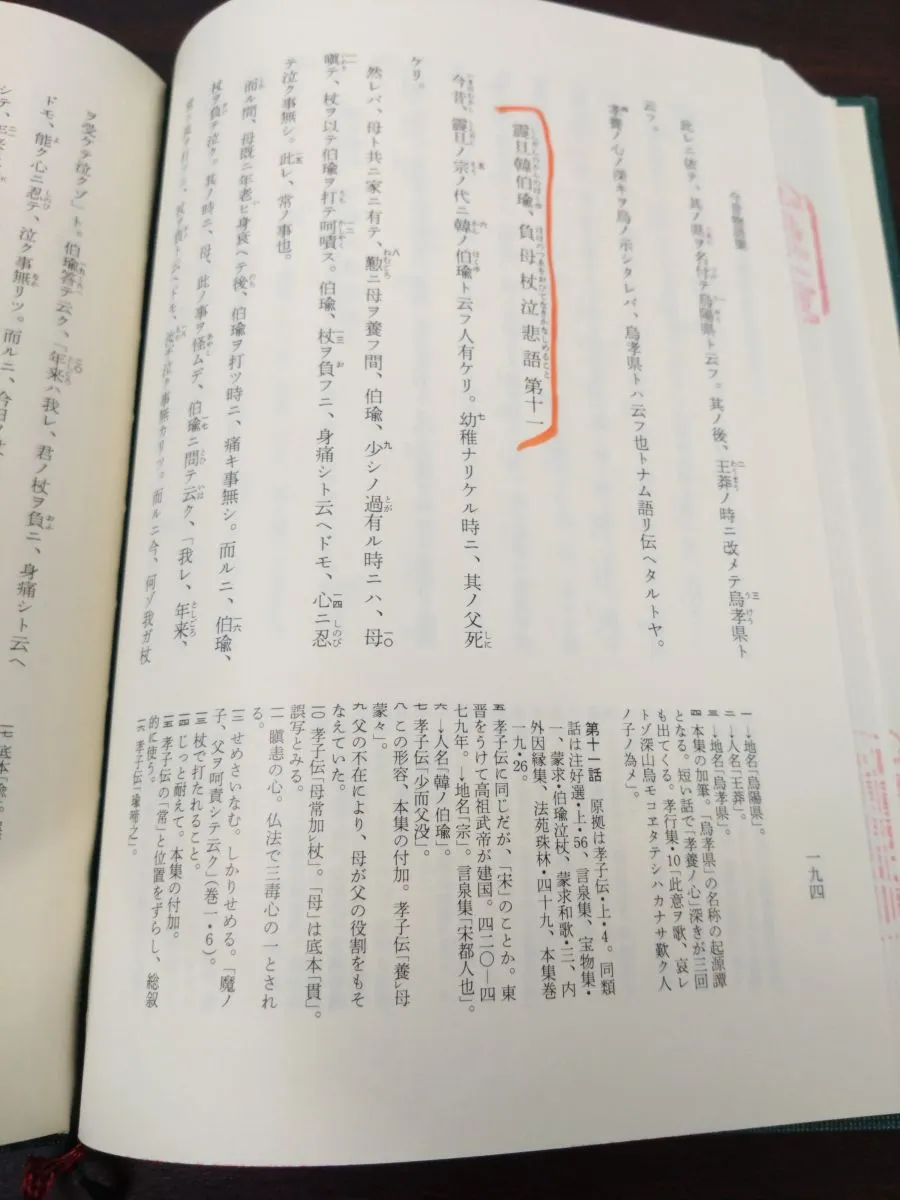 今昔物語集
此レニ依テ、其ノ県ヲ名付テ烏陽県ト云フ。其ノ後、王莽ノ時ニ改メテ烏孝県ト
云フ。
孝養ノ心ノ深キヲ烏ノ示シタレバ、烏孝県トハ云フ也トナム語リ伝ヘタルトヤ。
震旦韓伯瑜、負母杖泣悲語第十一
今昔、震旦ノ宗ノ代ニ韓ノ伯瑜ト云フ人有ケリ。幼稚ナリケル時ニ、其ノ父死
ケリ。
然レバ、母ト共ニ家ニ有テ、懃ニ母ヲ養フ間、伯瑜、少シノ過有ル時ニハ、母
嗔テ、杖ヲ以テ伯瑜ヲ打テ呵嘖ス。伯瑜、杖ヲ負フニ、身痛シト云ヘドモ、心ニ忍
テ泣ク事無シ。此レ、常ノ事也。
而ル間、母既ニ年老ヒ身衰ヘテ後、伯瑜ヲ打ツ時ニ、痛キ事無シ。而ルニ、伯瑜、
杖ヲ負テ泣ク。其ノ時ニ、母、此ノ事ヲ怪ムデ、伯瑜ニ問テ云ク、「我レ、年来、
ト云ヘドモ、泣ク事無カリツ。而ルニ今、何ゾ我ガ杖
ヲ受ケテ泣クゾ」ト。伯瑜答テ云ク、「年来ハ我レ、君ノ杖ヲ負ニ、身痛シト云ヘ
ドモ、能ク心ニ忍テ、泣ク事無リツ。而ルニ、今日ノ
一九四
一 →地名「烏陽県」。
二 →人名「王莽」。
三 →地名「烏孝県」。
四 本集の加筆。「烏孝県」の名称の起源譚
となる。短い話で「孝養ノ心」深きが三回
も出てくる。孝行集・10「此意ヲ歌、哀レ
トゾ深山烏モコヱタテシハカナサ歎ク人
ノ子ノ為メ」。
第十一話 原拠は孝子伝・上・4。同類
話は注好選・上・56、言泉集、宝物集・
一、蒙求・伯瑜泣杖、蒙求和歌・三、内
外因縁集、法苑珠林・四十九、本集巻
一九・26。
五 孝子伝に同じだが、「宋」のことか。東
晋をうけて高祖武帝が建国。四二〇―四
七九年。→地名「宗」。言泉集「宋都人也」。
六 →人名「韓ノ伯瑜」。
七 孝子伝「少而父没」。
八 この形容、本集の付加。孝子伝「養レ母
蒙々」。
九 父の不在により、母が父の役割をもそ
なえていた。
一〇 孝子伝「母常加レ杖」。「母」は底本「貫」。
誤写とみる。
一一 瞋恚の心。仏法で三毒心の一とされ
る。
一二 せめさいなむ。しかりせめる。「魔ノ
子、父ヲ呵責シテ云ク」(巻一・6)。
一三 杖で打たれること。
一四 じっと耐えて。本集の付加。
一五 孝子伝の「常」と位置をずらし、総叙
的に使う。
一六 孝子伝「瑜啼之」。